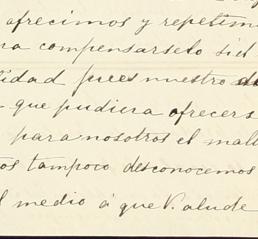 afrecimos y repetim
na compensarselo si el
lidad puees nuestro de
que pudiera afrecers
para nosotros el mall
os tampoco desconocemos
l medio á que V. alude